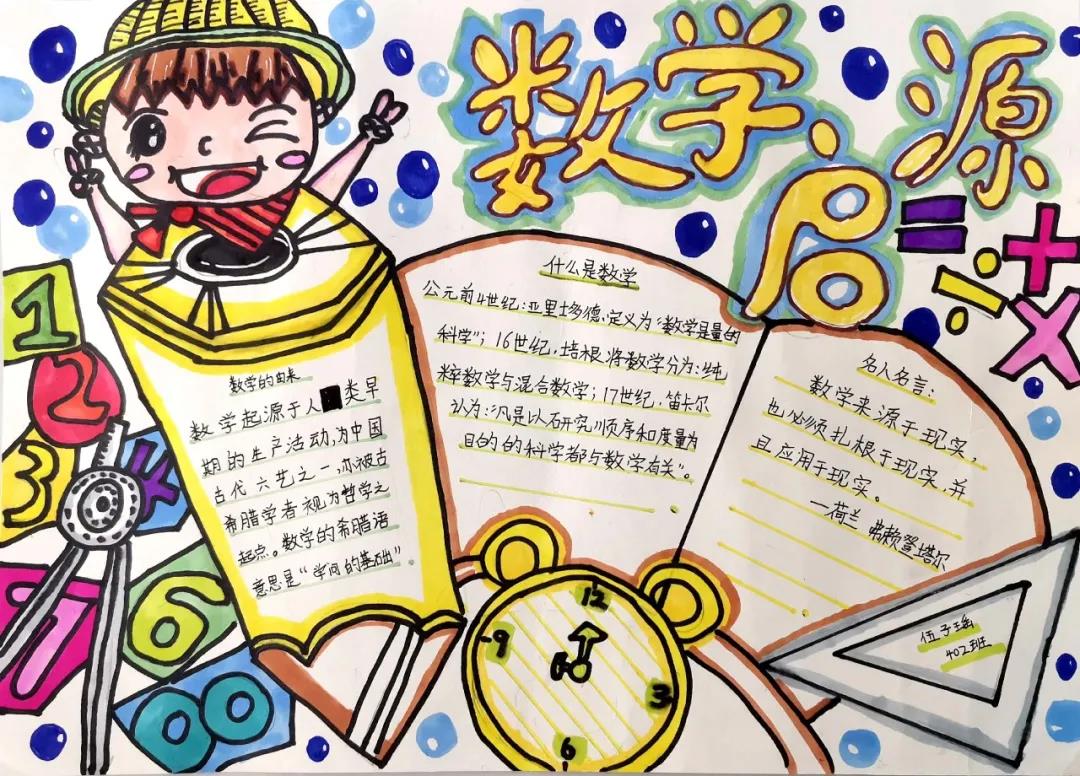 数学启源
什么是数学
公元前4世纪:亚里士多德:定义为“数学是量的
科学”;16世纪,培根将数学分为:纯
粹数学与混合数学;17世纪,笛卡尔
认为:“凡是以研究顺序和度量为
目的的科学都与数学有关”。
名人名言:
数学来源于现实,
也必须扎根于现实,并
且应用于现实。
—荷兰 弗赖登塔尔
数学的由来
数学起源于人类早
期的生产活动,为中国
古代六艺之一,亦被古
希腊学者视为哲学之
起点。数学的希腊语
意思是“学问的基础”。
= + ÷ ×
1
2
3
4
6
7
8
12
9
3
6
伍子瑶
402班